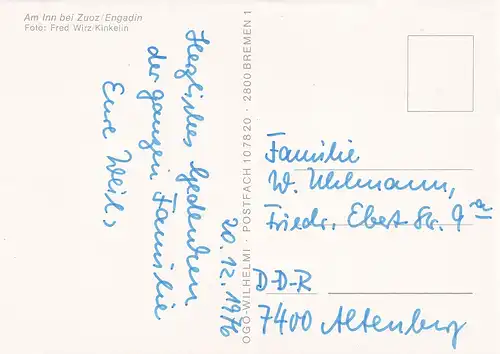 Am Inn bei Zuoz/Engadin
Foto: Fred Wirz-Kinkelin
20.12.1976
Herzliches Gedenken
der ganzen Familie
Eure Weils
OGO-WILHELMI · POSTFACH 107820 · 2800 BREMEN 1
Familie
W. Uhlmann,
Friedr. Ebert Str. 9a
D-D-R
7400 Altenburg